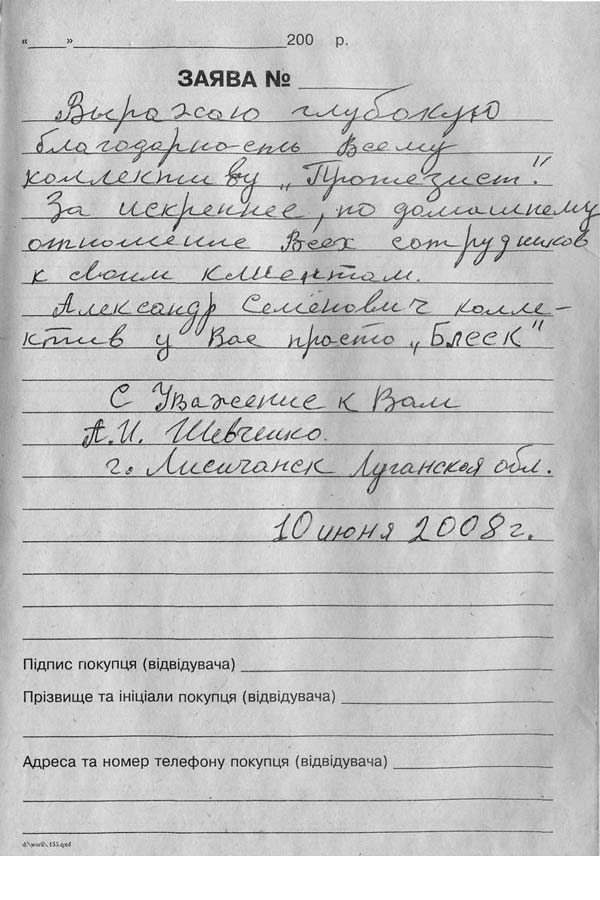 «____»____________________200 р.
ЗАЯВА № ________
Выражаю глубокую
благодарность Всему
коллективу „Протезист".
За искреннее, по домашнему
отношение Всех сотрудников
к своим клиентам.
Александр Семёнович колле-
ктив у Вас просто „Блеск"
С Уважение к Вам
А.И. Шевченко.
г. Лисичанск Луганская обл.
10 июня 2008 г.
Підпис покупця (відвідувача)
Прізвище та ініціали покупця (відвідувача)
Адреса та номер телефону покупця (відвідувача)